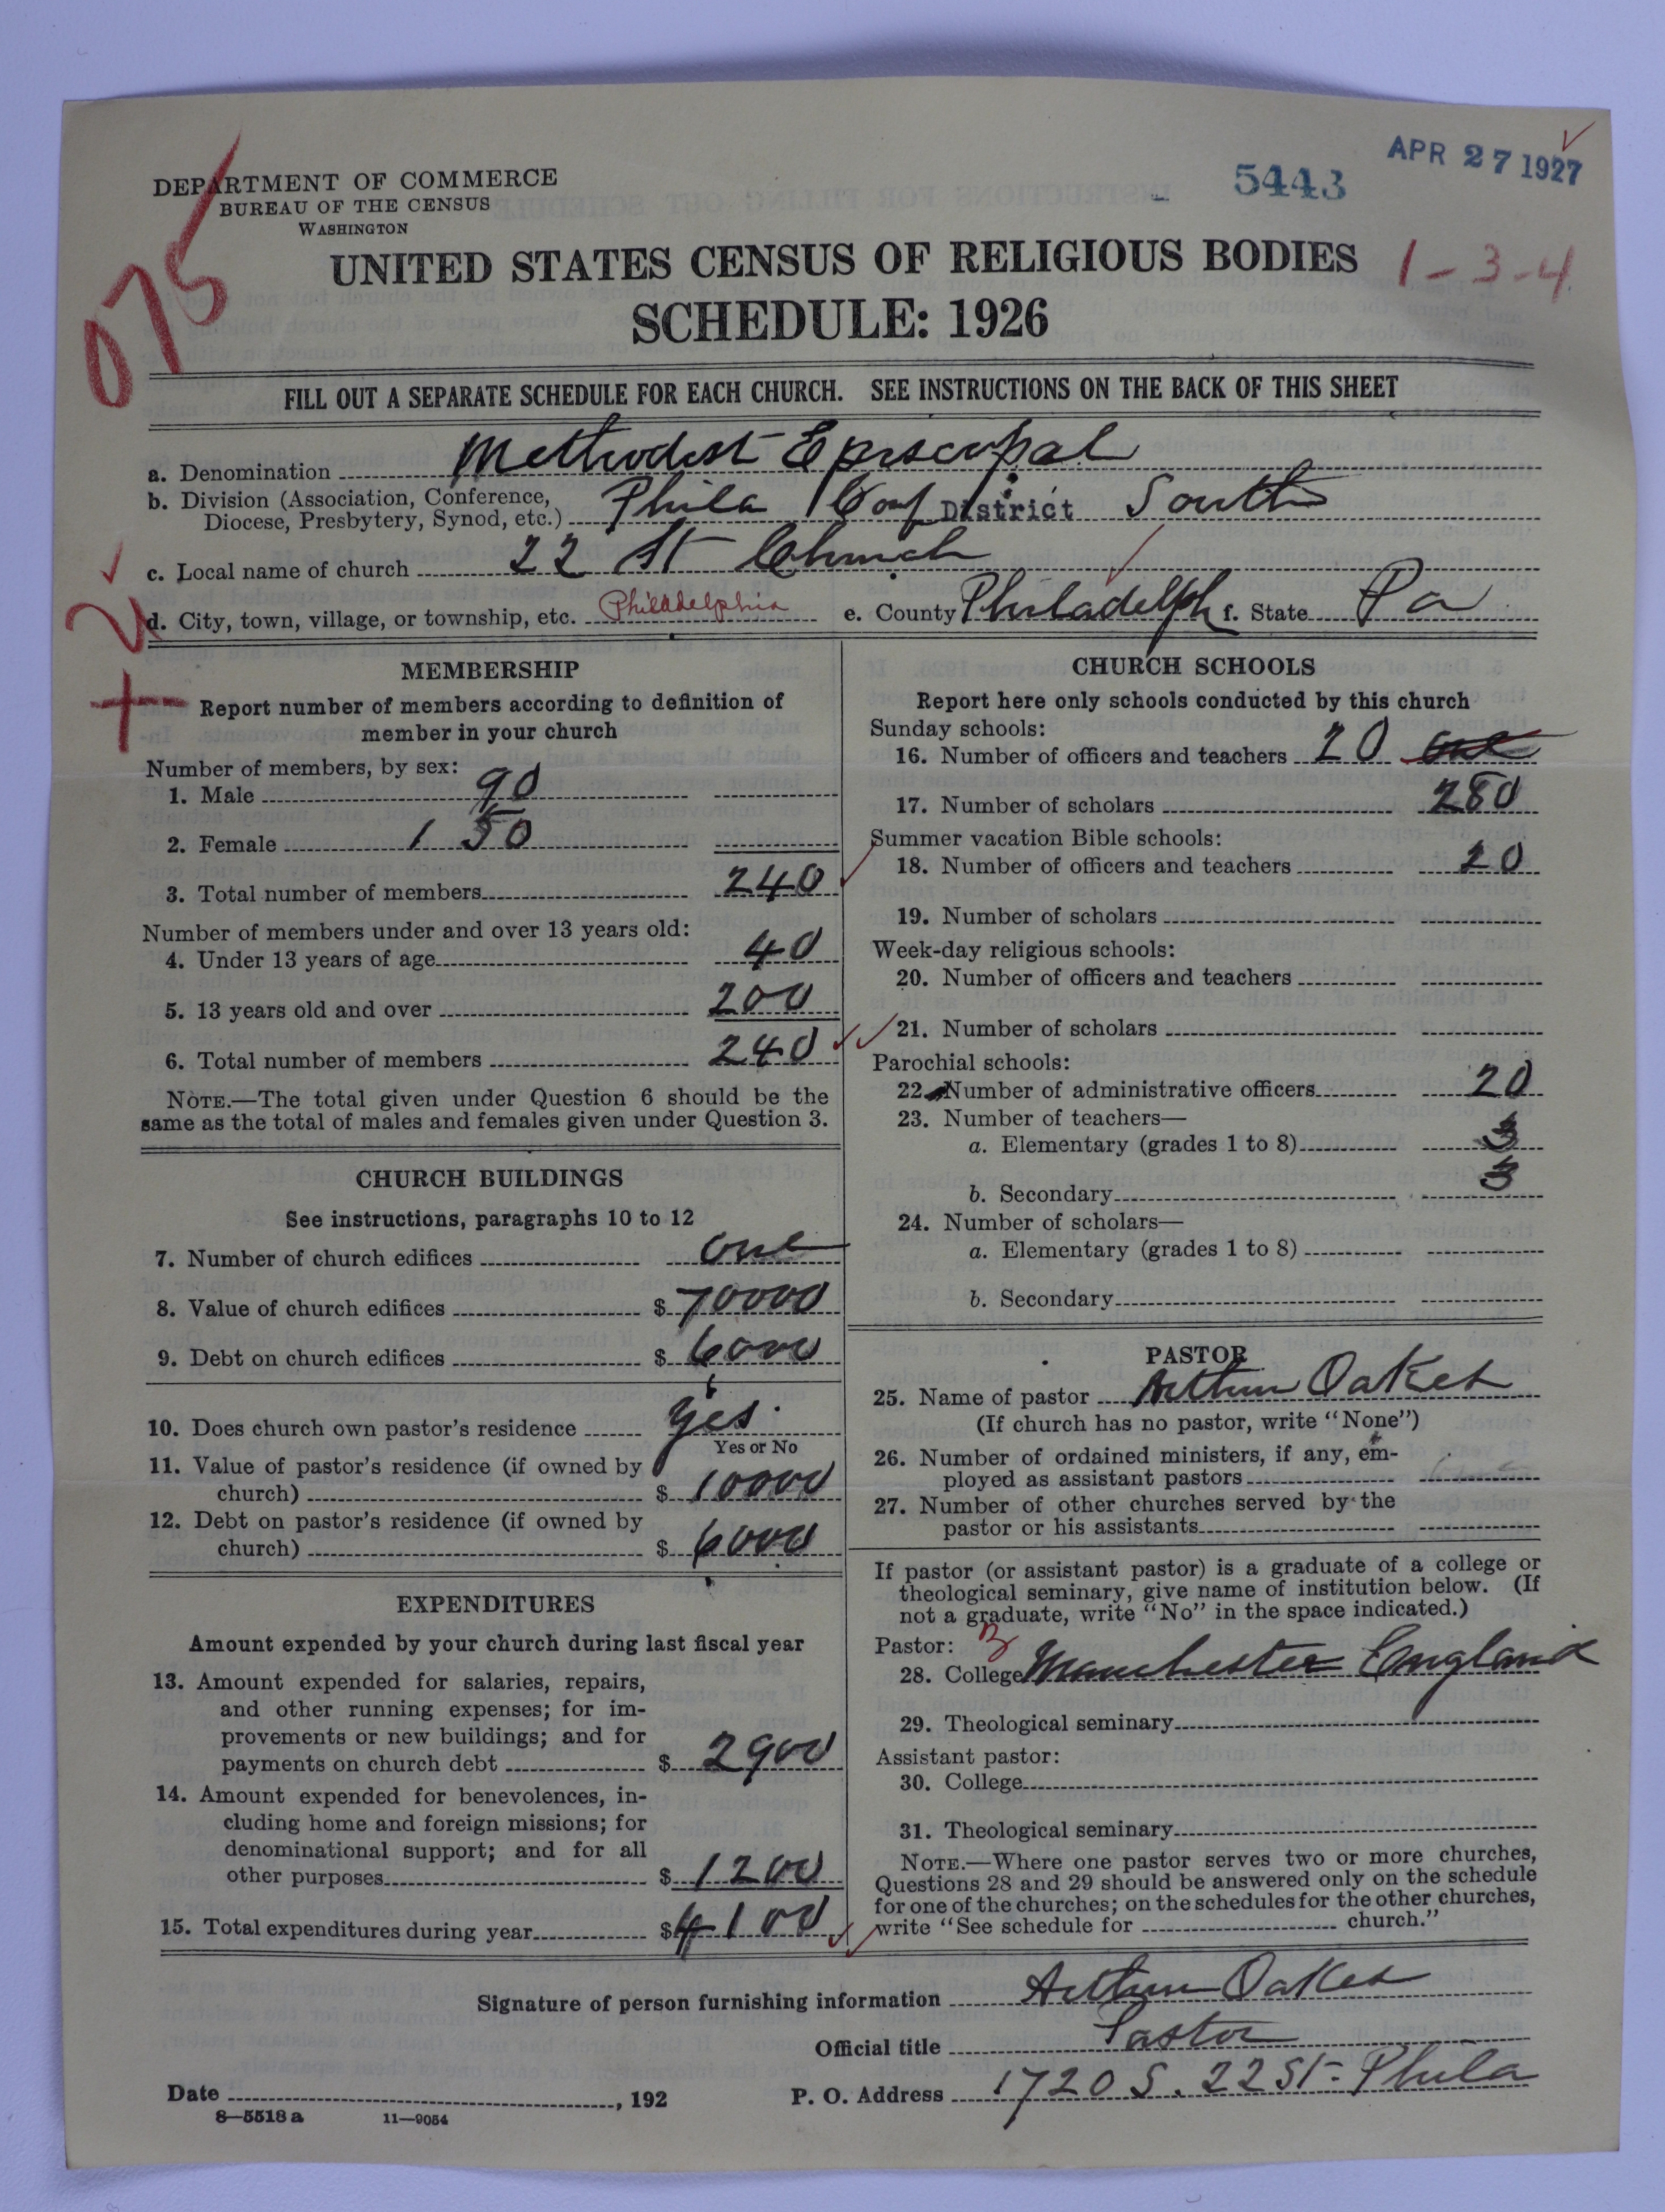 APR 27 1927
5443
DEPARTMENT OF COMMERCE
BUREAU OF THE CENSUS
WASHINGTON
075
UNITED STATES CENSUS OF RELIGIOUS BODIES 1-3-4
SCHEDULE: 1926
FILL OUT A SEPARATE SCHEDULE FOR EACH CHURCH. SEE INSTRUCTIONS ON THE BACK OF THIS SHEET
a. Denomination Methodist Episcopal
b. Division (Association, Conference,
Diocese, Presbytery, Synod, etc.) Phila Conf District South
c. Local name of church 22 St Church
d. City, town, village, or township, etc. Philadelphia e. County Philadelph f. State Pa
+2
MEMBERSHIP
Report number of members according to definition of
member in your church
Number of members, by sex:
1. Male 90
2. Female 150
3. Total number of members 240
Number of members under and over 13 years old:
4. Under 13 years of age 40
5. 13 years old and over 200
6. Total number of members 240
NOTE.—The total given under Question 6 should be the
same as the total of males and females given under Question 3.
CHURCH BUILDINGS
See instructions, paragraphs 10 to 12
7. Number of church edifices one
8. Value of church edifices $ 70000
9. Debt on church edifices $ 6000
10. Does church own pastor's residence yes
Yes or No
11. Value of pastor's residence (if owned by
church) $ 10000
12. Debt on pastor's residence (if owned by
church) $ 6000
EXPENDITURES
Amount expended by your church during last fiscal year
13. Amount expended for salaries, repairs,
and other running expenses; for im-
provements or new buildings; and for
payments on church debt $ 2900
14. Amount expended for benevolences, in-
cluding home and foreign missions; for
denominational support; and for all
other purposes $ 1200
15. Total expenditures during year $ 4100
CHURCH SCHOOLS
Report here only schools conducted by this church
Sunday schools:
16. Number of officers and teachers 20 one
17. Number of scholars 280
Summer vacation Bible schools:
18. Number of officers and teachers 20
19. Number of scholars
Week-day religious schools:
20. Number of officers and teachers
21. Number of scholars
Parochial schools:
22. Number of administrative officers 20
23. Number of teachers—
a. Elementary (grades 1 to 8) 3
b. Secondary 3
24. Number of scholars—
a. Elementary (grades 1 to 8)
b. Secondary
PASTOR
25. Name of pastor Arthur Oakes
(If church has no pastor, write "None")
26. Number of ordained ministers, if any, em-
ployed as assistant pastors
27. Number of other churches served by the
pastor or his assistants
If pastor (or assistant pastor) is a graduate of a college or
theological seminary, give name of institution below. (If
not a graduate, write "No" in the space indicated.)
Pastor:
28. College Manchester England
29. Theological seminary
Assistant pastor:
30. College
31. Theological seminary
NOTE.—Where one pastor serves two or more churches,
Questions 28 and 29 should be answered only on the schedule
for one of the churches; on the schedules for the other churches,
write "See schedule for church."
Signature of person furnishing information Arthur Oakes
Official title Pastor
Date , 192 P. O. Address 1720 S. 22 St - Phila
8—5518 a 11—9054